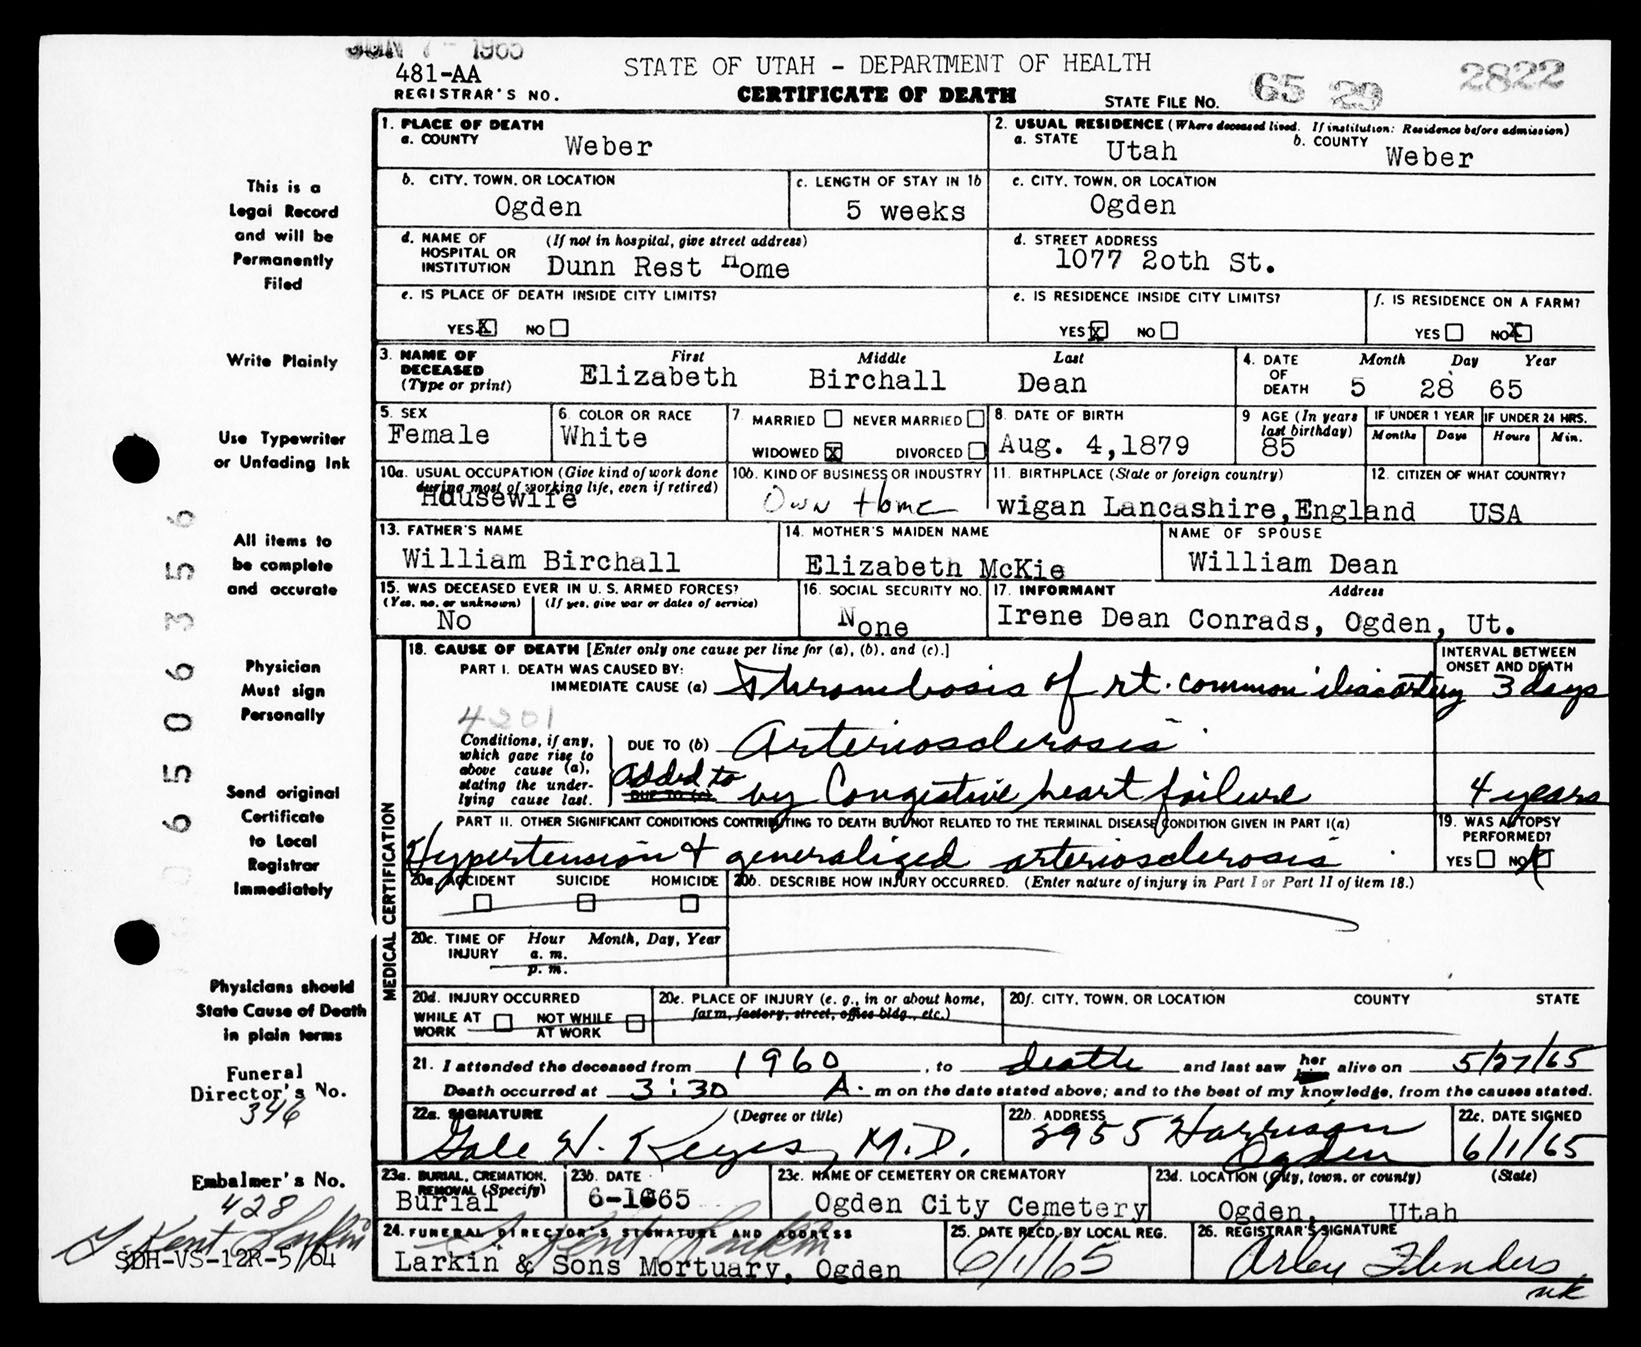 JUN 7 - 1965
481-AA
REGISTRAR'S NO.
STATE OF UTAH - DEPARTMENT OF HEALTH
CERTIFICATE OF DEATH
STATE FILE NO. 65 29 2822
This is a
Legal Record
and will be
Permanently
Filed
Write Plainly
Use Typewriter
or Unfading Ink
All items to
be complete
and accurate
Physician
Must sign
Personally
Send original
Certificate
to Local
Registrar
Immediately
Physicians should
State Cause of Death
in plain terms
Funeral
Director's No.
346
Embalmer's No.
428
G. Kent Larkin
SDH-VS-12R-5/64
0 6 5 0 6 3 5 6
1. PLACE OF DEATH
a. COUNTY Weber
2. USUAL RESIDENCE (Where deceased lived. If institution: Residence before admission)
a. STATE Utah b. COUNTY Weber
b. CITY, TOWN, OR LOCATION Ogden
c. LENGTH OF STAY IN 1b 5 weeks
c. CITY, TOWN, OR LOCATION Ogden
d. NAME OF HOSPITAL OR INSTITUTION (If not in hospital, give street address)
Dunn Rest Home
d. STREET ADDRESS
1077 20th St.
e. IS PLACE OF DEATH INSIDE CITY LIMITS?
YES X NO
e. IS RESIDENCE INSIDE CITY LIMITS?
YES X NO
f. IS RESIDENCE ON A FARM?
YES NO X
3. NAME OF DECEASED (Type or print) First Middle Last
Elizabeth Birchall Dean
4. DATE OF DEATH Month Day Year
5 28 65
5. SEX
Female
6. COLOR OR RACE
White
7 MARRIED NEVER MARRIED
WIDOWED X DIVORCED
8. DATE OF BIRTH
Aug. 4,1879
9 AGE (In years last birthday)
85
IF UNDER 1 YEAR Months Days
IF UNDER 24 HRS. Hours Min.
10a. USUAL OCCUPATION (Give kind of work done during most of working life, even if retired)
Housewife
10b. KIND OF BUSINESS OR INDUSTRY
Own Home
11. BIRTHPLACE (State or foreign country)
wigan Lancashire,England
12. CITIZEN OF WHAT COUNTRY?
USA
13. FATHER'S NAME
William Birchall
14. MOTHER'S MAIDEN NAME
Elizabeth McKie
NAME OF SPOUSE
William Dean
15. WAS DECEASED EVER IN U. S. ARMED FORCES?
(Yes, no, or unknown) (If yes, give war or dates of service)
No
16. SOCIAL SECURITY NO.
None
17. INFORMANT Address
Irene Dean Conrads, Ogden, Ut.
MEDICAL CERTIFICATION
18. CAUSE OF DEATH [Enter only one cause per line for (a), (b), and (c).]
INTERVAL BETWEEN ONSET AND DEATH
PART I. DEATH WAS CAUSED BY:
IMMEDIATE CAUSE (a) Thrombosis of rt. common iliac artery 3 days
4201
Conditions, if any, which gave rise to above cause (a), stating the underlying cause last.
DUE TO (b) Arteriosclerosis
DUE TO (c) added to by Congestive heart failure 4 years
PART II. OTHER SIGNIFICANT CONDITIONS CONTRIBUTING TO DEATH BUT NOT RELATED TO THE TERMINAL DISEASE CONDITION GIVEN IN PART I(a)
Hypertension & generalized arteriosclerosis
19. WAS AUTOPSY PERFORMED?
YES NO X
20a. ACCIDENT SUICIDE HOMICIDE
20b. DESCRIBE HOW INJURY OCCURRED. (Enter nature of injury in Part I or Part II of item 18.)
20c. TIME OF INJURY Hour Month, Day, Year
a. m.
p. m.
20d. INJURY OCCURRED
WHILE AT WORK NOT WHILE AT WORK
20e. PLACE OF INJURY (e. g., in or about home, farm, factory, street, office bldg., etc.)
20f. CITY, TOWN, OR LOCATION COUNTY STATE
21. I attended the deceased from 1960, to death and last saw her alive on 5/27/65
Death occurred at 3:30 A. m on the date stated above; and to the best of my knowledge, from the causes stated.
22a. SIGNATURE (Degree or title)
Gale W. Keyes, M.D.
22b. ADDRESS
2955 Harrison
Ogden
22c. DATE SIGNED
6/1/65
23a. BURIAL, CREMATION, REMOVAL (Specify)
Burial
23b. DATE
6-1-65
23c. NAME OF CEMETERY OR CREMATORY
Ogden City Cemetery
23d. LOCATION (City, town, or county) (State)
Ogden, Utah
24. FUNERAL DIRECTOR'S SIGNATURE AND ADDRESS
G. Kent Larkin
Larkin & Sons Mortuary, Ogden
25. DATE RECD. BY LOCAL REG.
6/1/65
26. REGISTRAR'S SIGNATURE
Arley Flinders
nk